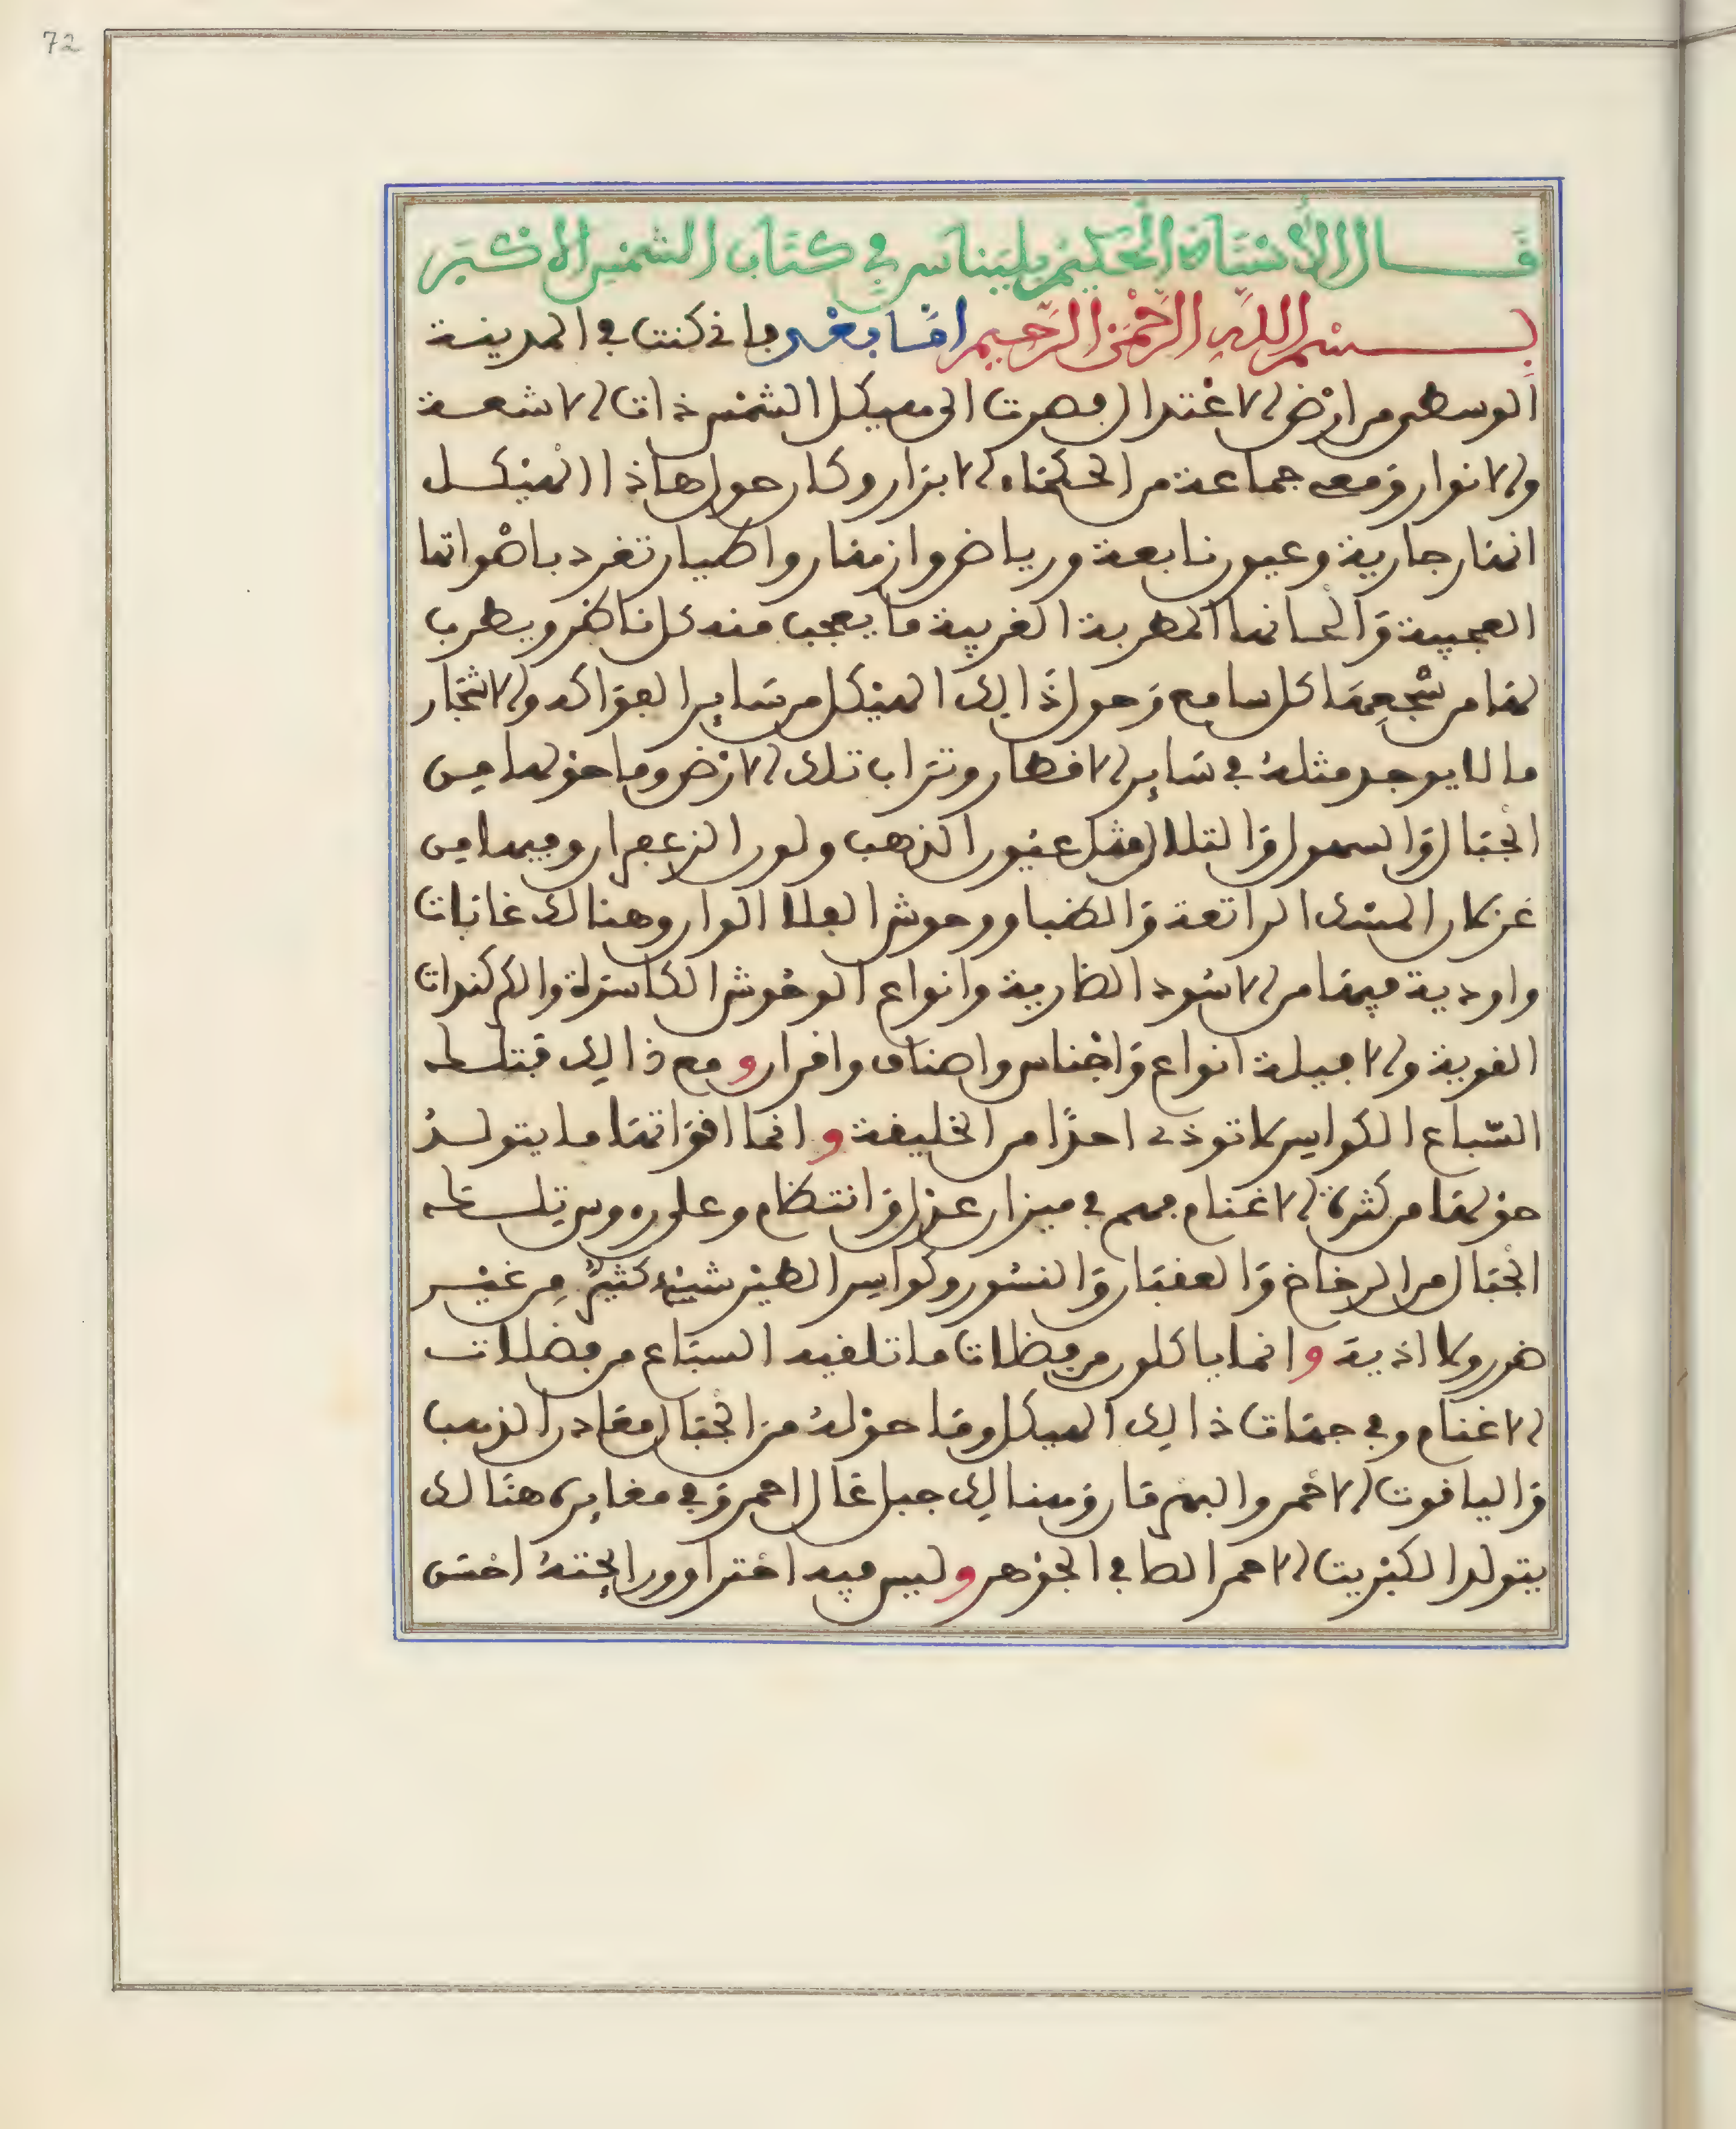 72
قال الأستاذ الحكيم بليناس في كتاب الشمس الأكبر
بسم الله الرحمن الرحيم اما بعد فاني كنت في المدينة
الوسطى من ارض الاعتدال فصرت الى هيكل الشمس ذات الاشعة
والانوار ومعي جماعة من الحكماء الابرار وكان حول هاذا الهيكل
انهار جارية وعيون نابعة ورياض وازهار واطيار تغرد باصواتها
العجيبة والحانها المطربة الغريبة ما يعجب منه كل ناظر ويطرب
لها من سجعها كل سامع وحول ذالك الهيكل من ساير الفواكه والاشجار
ما لا يوجد مثله في ساير الاقطار وتراب تلك الارض وما حولها من
الجبال والسهول والتلال مثل عيون الذهب ولون الزعفران وفيها من
غزلان المسك الراتعة والظبا ووحوش الفلا الوان وهنالك غابات
واودية فيها من الاسود الضارية وانواع الوحوش الكاسرة والكركندات
القوية والافيلة انواع واجناس واصناف وافراد و مع ذالك فتلك
السباع الكواسر لا توذي احدا من الخليقة و انما اقواتها ما يتولد
حولها من كثرة الاغنام فهم في ميزان عدل وانتظام وعلى روس تلك
الجبال من الرخاخ والعقبان والنسور وكواسر الطير شيء كثير من غير
ضرر ولا اذية و انما ياكلون من فضلات ما تلقيه السباع من فضلات
الاغنام وفي جهات ذالك الهيكل وما حوله من الجبال معادن الذهب
والياقوت الاحمر والبهرمان وهنالك جبل عال احمر وفي مغايره هنالك
يتولد الكبريت الاحمر الصافي الجوهر و ليس فيه احتراق ورايحته احسن